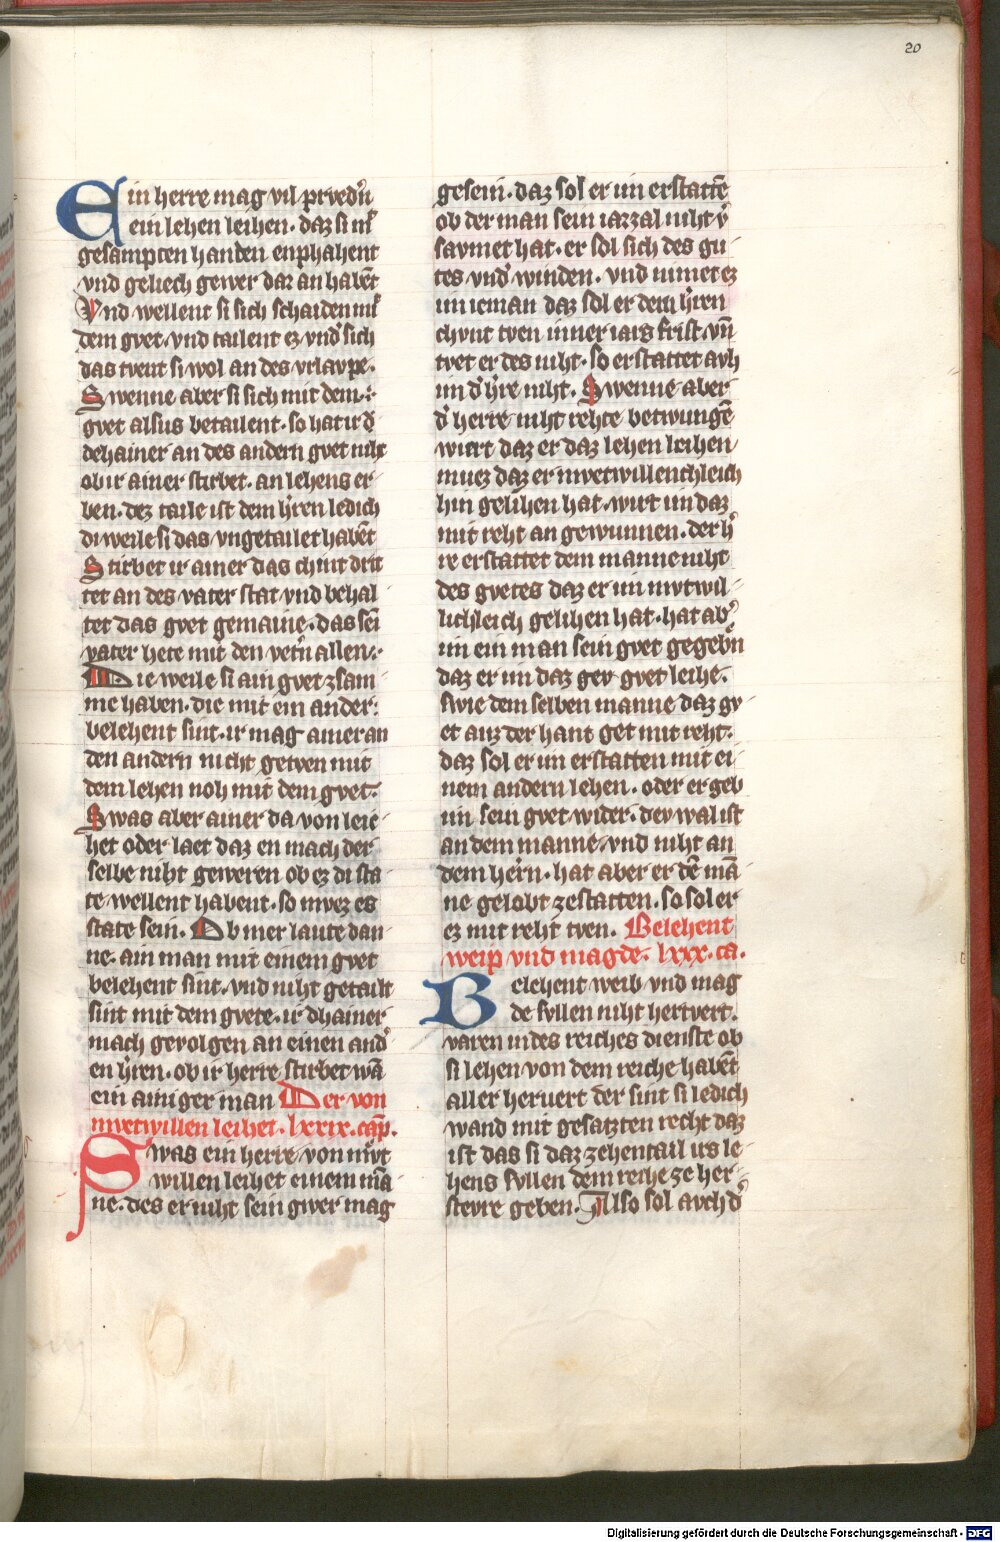 20
Ein herre mag vil prvedˀn
ein lehen leihen · daz si mˀt
gesampten handen enphahent
vnd geliech gewer dar an habēt
Vnd wellent si sich schaiden mˀt
dem gvet · vnd tailent ez vndˀ sich
das tvent si wol an des vrlavpe ·
Swenne aber si sich mit dem
gvet alsus betailent · so hat ir dˀ
dehainer an des andern gvet niht
ob ir ainer stirbet · an lehens er
ben · dez taile ist dem hˀren ledich
di weile si das vngetailet habēt
Stirbet ir ainer das chint drit
tet an des vater stat vnd behal
tet das gvet gemaine · das sein
vater hete mit den vetˀn allen ·
Die weile si ain gvet zsam
me haben · die mit ein ander
belehent sint · ir mag ainer an
den andern nicht getven mit
dem lehen noh mit dem gvet ·
Swas aber ainer da von leie
het oder laet daz en mach der
selbe niht geweren ob ez di sta
te wellent habent · so mvez es
state sein · Ob mer laute dan
ne · ain man mit einem gvet
belehent sint · vnd niht getailt
sint mit dem gvete · ir dhainer
mach gevolgen an einen andˀ
en hˀren · ob ir herre stirbet wā
ein ainiger man Der von
mvetwillen leihet · lxxix · cap̄ ·
Swas ein herre von mvt
willen leihet einem mā
ne · des er niht sein gwer mag
gesein · daz sol er im erstattē
ob der man sein iarzal niht vˀ
savmet hat · er sol sich des gu
tes vndˀ winden · vnd nimet ez
im ieman daz sol er dem hˀren
chvnt tven inner iars frist · vn̄
tvet er des niht · so erstattet avh
im dˀ hˀre niht · Swenne aber
dˀ herre niht rehte betwungē
wirt daz er daz lehen leihen
muez daz er mvetwillenchleich
hin gelihen hat · wirt im daz
mit reht an gewunnen · der hˀ
re erstattet dem manne niht
des gvetes daz er im mvtwil
lichleich gelihen hat · hat abˀ
im ein man sein gvet gegebˀn
daz er im daz gev gvet leihe ·
swie dem selben manne daz gv
et auz der hant get mit reht ·
daz sol er im erstatten mit ei
nem andern lehen · oder er geb
im sein gvet wider · dev wal ist
an dem manne · vnd niht an
dem herˀn · hat aber er dē mā
ne gelobt zestatten · so sol er
ez mit reht tven · Belehent
weip vnd magde · lxxx · ca ·
Belehent weib vnd mag
de svllen niht hertvert ·
varen in des reiches dienste ob
si lehen von dem reiche habēt
aller hervert der sint si ledich
wand mit gesatzten recht daz
ist das si daz zehentail irs le
hens svllen dem reiche ze her
stevre geben · Also sol avch dˀ
Digitalisierung gefördert durch die Deutsche Forschungsgemeinschaft - DFG